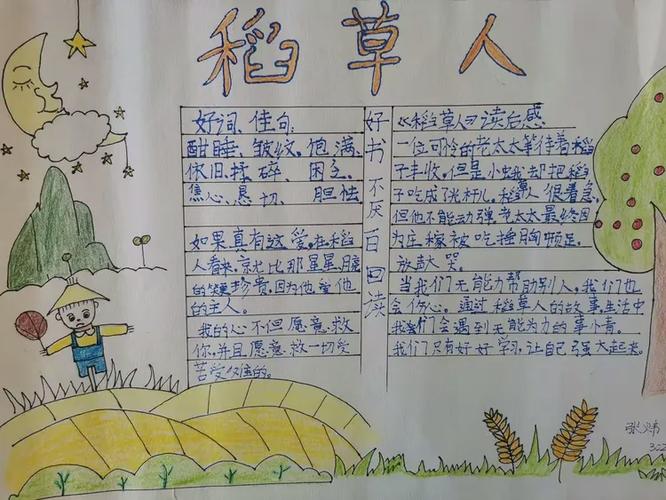 稻草人
好词、佳句:
酣睡、皱纹、饱满、
依旧、揉碎、困乏、
焦心、恳切、胆怯
如果真有这爱,在稻
人看来,就比那星星、月亮
的更珍贵,因为他爱他
的主人。
我的心不但愿意救
你,并且愿意救一切受
苦受难的。
好书不厌百回读
《稻草人》读后感
一位可怜的老太太等待着稻
子丰收。但是小虫我却把稻
子吃成了光杆儿,稻草人很着急,
但他不能动弹,老太太最终因
为庄稼被吃捶胸顿足。
放声大哭。
当我们无能力帮助别人,我们也
会伤心。通过稻草人的故事,生活中
我们会遇到无能为力的事情。
我们只有好好学习,让自己强大起来。
张炜